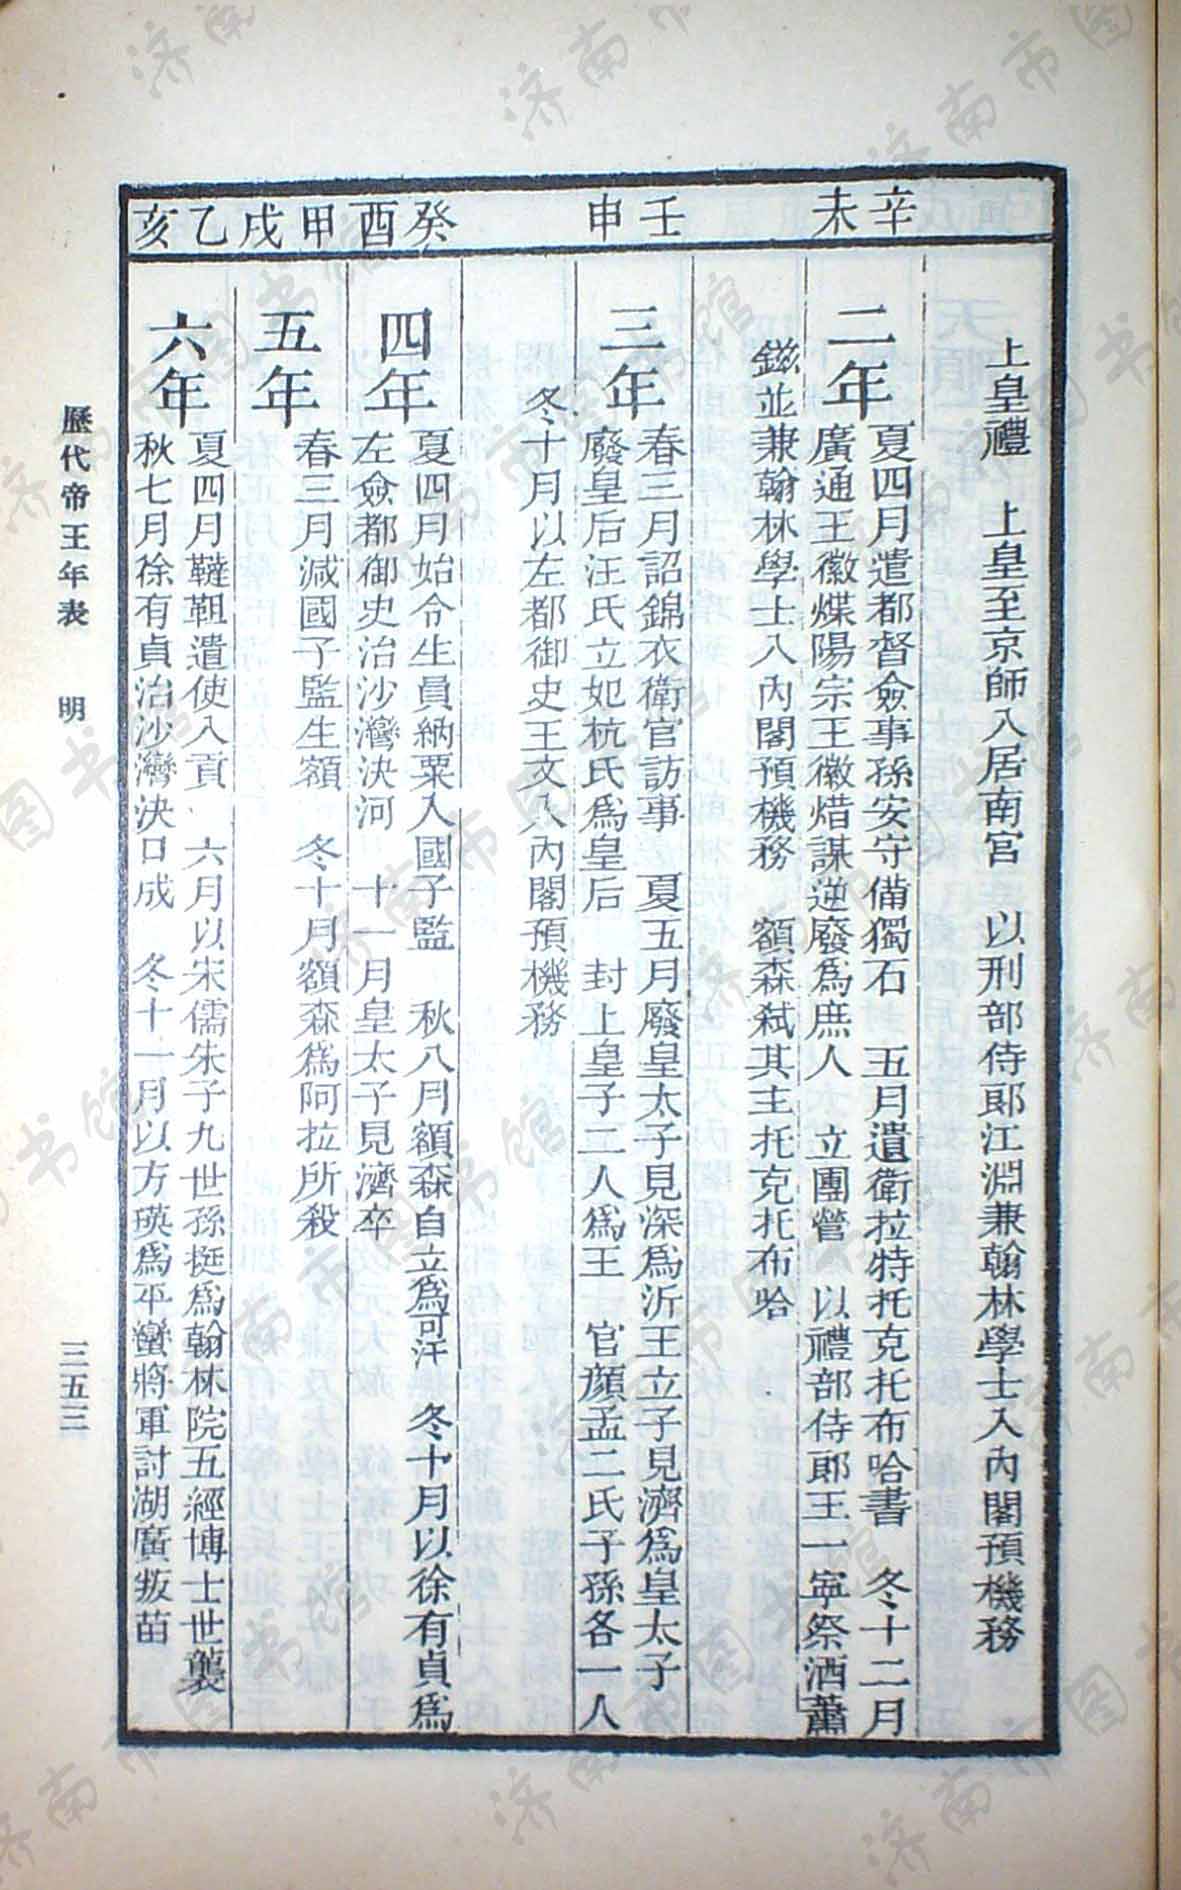 辛未
壬申
癸酉
甲戌
乙亥
上皇禮　上皇至京師入居南宫　以刑部侍郎江淵兼翰林學士入內閣預機務
二年
夏四月遣都督僉事孫安守備獨石　五月遺衛拉特托克托布哈書　冬十二月
廣通王徽煠陽宗王徽焟謀逆廢爲庶人　立團營　以禮部侍郎王一寧祭酒蕭
鎡並兼翰林學士入內閣預機務　額森弒其主托克托布哈
三年
春三月詔錦衣衛官訪事　夏五月廢皇太子見深爲沂王立子見濟爲皇太子
廢皇后汪氏立妃杭氏爲皇后　封上皇子二人爲王　官顏孟二氏子孫各一人
冬十月以左都御史王文入內閣預機務
四年
夏四月始令生員納粟入國子監　秋八月額森自立爲可汗　冬十月以徐有貞爲
左僉都御史治沙灣決河　十一月皇太子見濟卒
五年
春三月減國子監生額　冬十月額森爲阿拉所殺
六年
夏四月韃靼遣使入貢　六月以宋儒朱子九世孫梃爲翰林院五經博士世襲
秋七月徐有貞治沙灣決口成　冬十一月以方瑛爲平蠻將軍討湖廣叛苗
歷代帝王年表　明　三五三
济南市图书馆